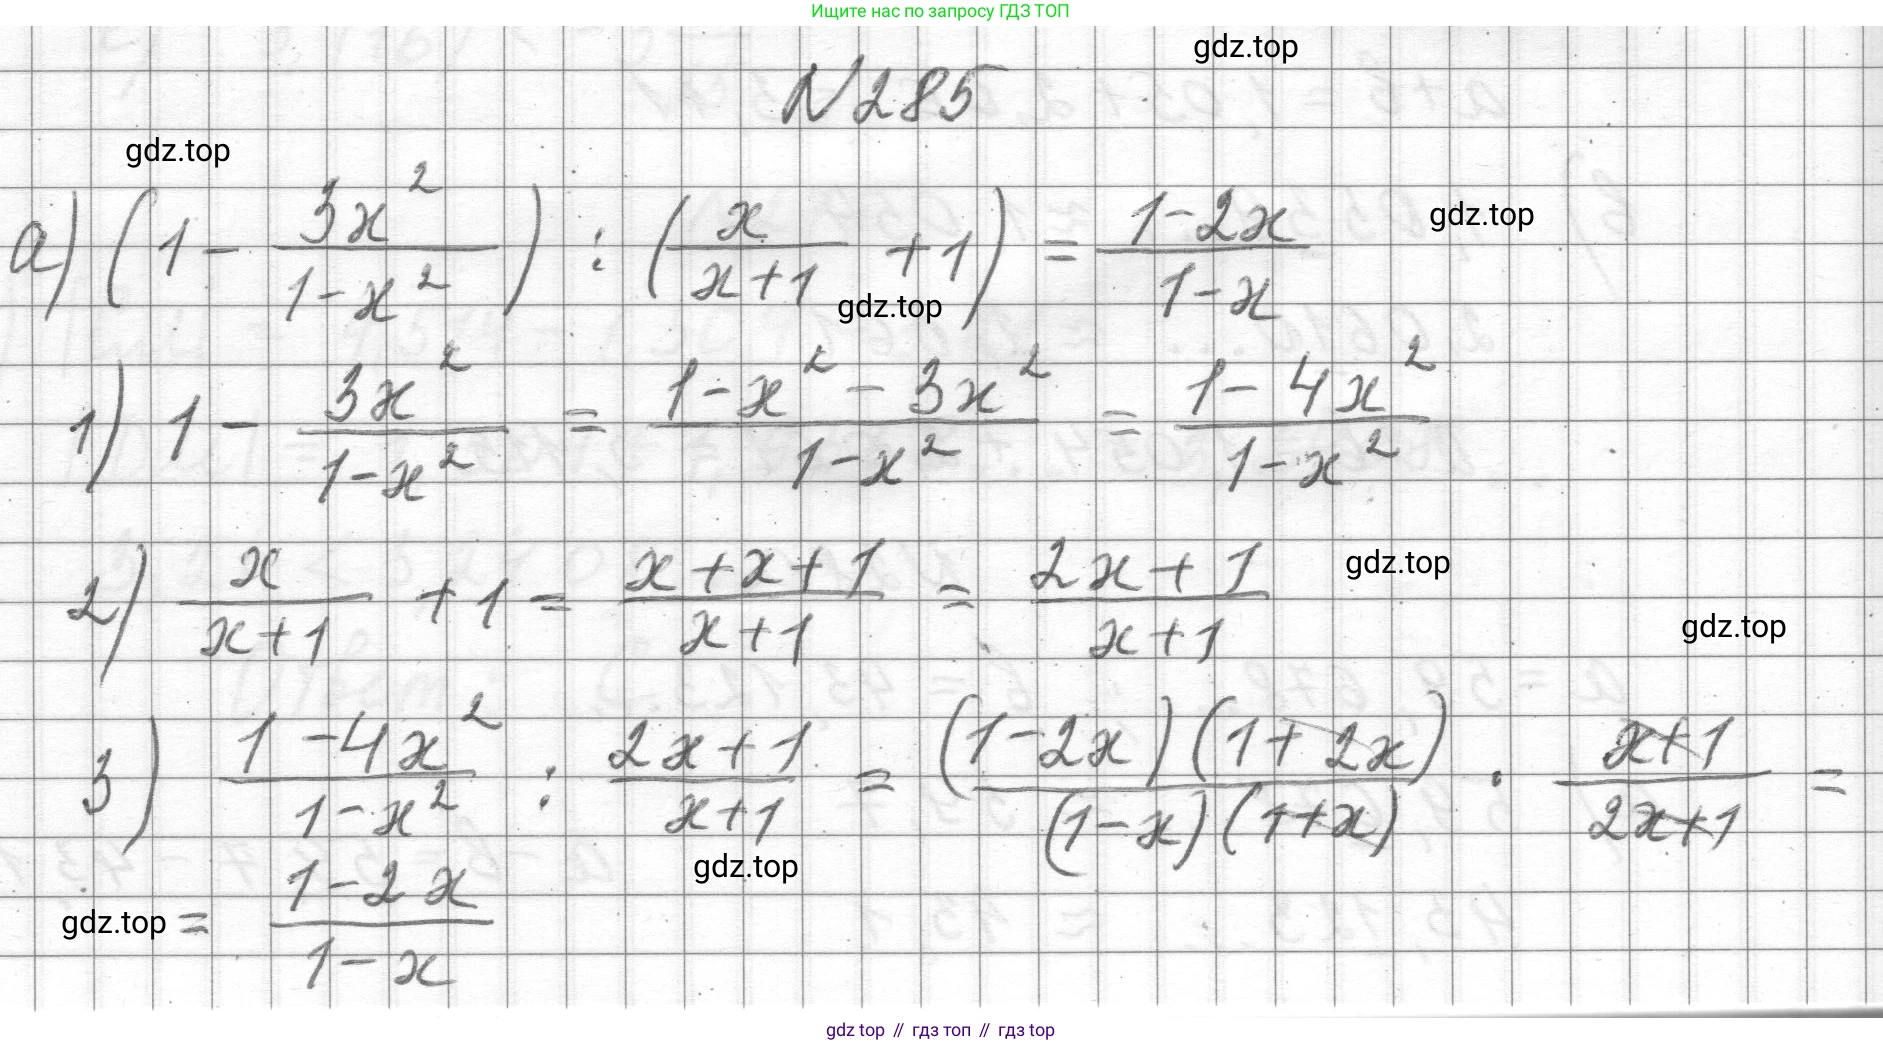 Ищите нас по запросу ГДЗ ТОП
gdz.top
N 285
gdz.top
а) (1 - 3x²/(1-x²)) : (x/(x+1) + 1) = (1-2x)/(1-x)
gdz.top
gdz.top
1) 1 - 3x²/(1-x²) = (1-x²-3x²)/(1-x²) = (1-4x²)/(1-x²)
2) x/(x+1) + 1 = (x+x+1)/(x+1) = (2x+1)/(x+1)
gdz.top
gdz.top
3) (1-4x²)/(1-x²) : (2x+1)/(x+1) = (1-2x)(1+2x)/((1-x)(1+x)) · (x+1)/(2x+1) =
gdz.top
gdz.top
= (1-2x)/(1-x)
gdz top // гдз топ // gdz top